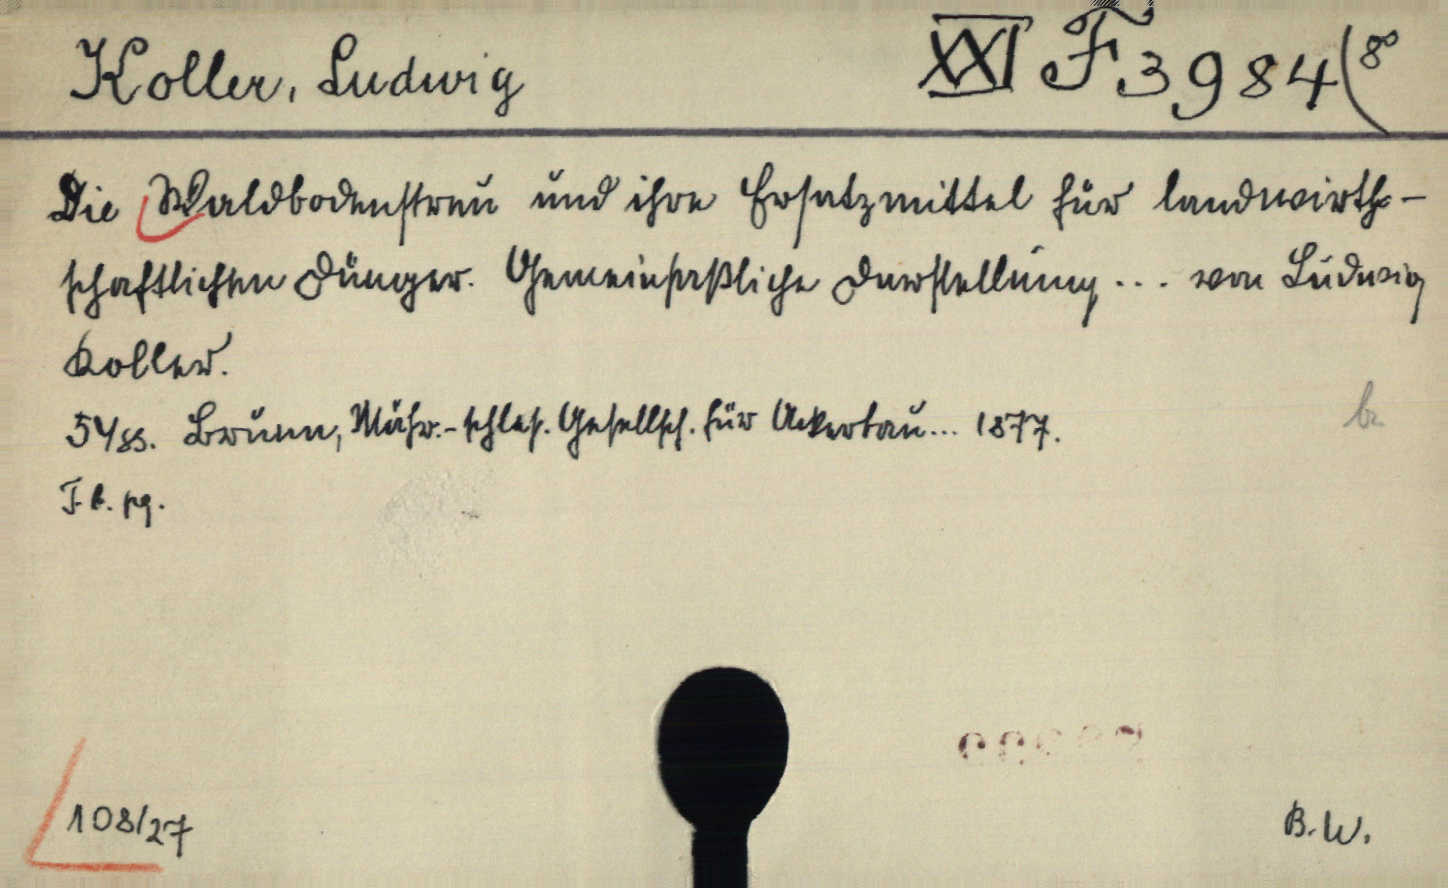 Koller, Ludwig
XXI F 3984(8°
Die Waldbodenstreu und ihre Ersatzmittel für landwirth-
schaftlichen Dünger. Gemeinfaßliche Darstellung... von Ludwig
Koller.
54 SS. Brünn, Mähr.-schles. Gesellsch. für Ackerbau... 1877.
F. b. pg.
108/27
B. W.